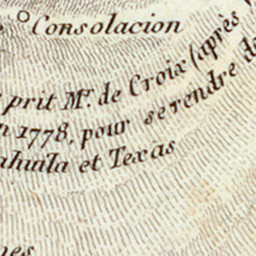 Consolacion
prit Mr. de Croix (après
1778, pour se rendre
et Texas